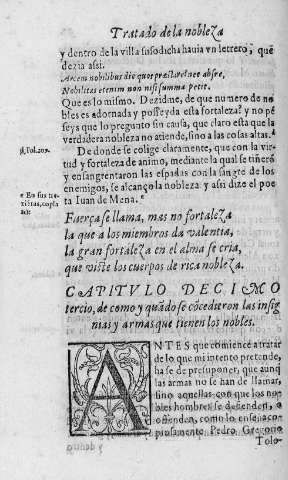 Tratado de la nobleza
y dentro de la villa susodicha hauia vn letrero, quē
dezia assi.
Arcem nobilibus dic quot præclare nec absre,
Nobilitas etenim non nisi summa petit.
Que es lo mismo. Dezidme, de que numero de no
bles es adornada y posseyda esta fortaleza? y no pē
seys que lo pregunto sin causa, que claro esta que la
verdadera nobleza no atiende, sino a las cosas altas.
De donde se colige claramente, que con la vir
tud y fortaleza de animo, mediante la qual se tiñerō
y ensangrentaron las espadas con la sangre de los
enemigos, se alcanço la nobleza y assi dize el poe
ta Iuan de Mena. e
fol. 209.
e En sus tre
zientas, copla
Fuerça se llama, mas no fortaleza
la que a los miembros da valentia,
la gran fortaleza en el alma se cria,
que viste los cuerpos de rica nobleza.
CAPITVLO DECIMO
tercio, de como y quādo se cōcedieron las insig
nias y armas que tienen los nobles.
ANTES que comience a tratar
de lo que mi intento pretende,
ha se de presuponer, que aunq̄
las armas no se han de llamar,
sino aquellas con que los no-
bles hombres se defienden, o
offenden, como lo enseña co-
piosamente Pedro Gregorio
Tolo-